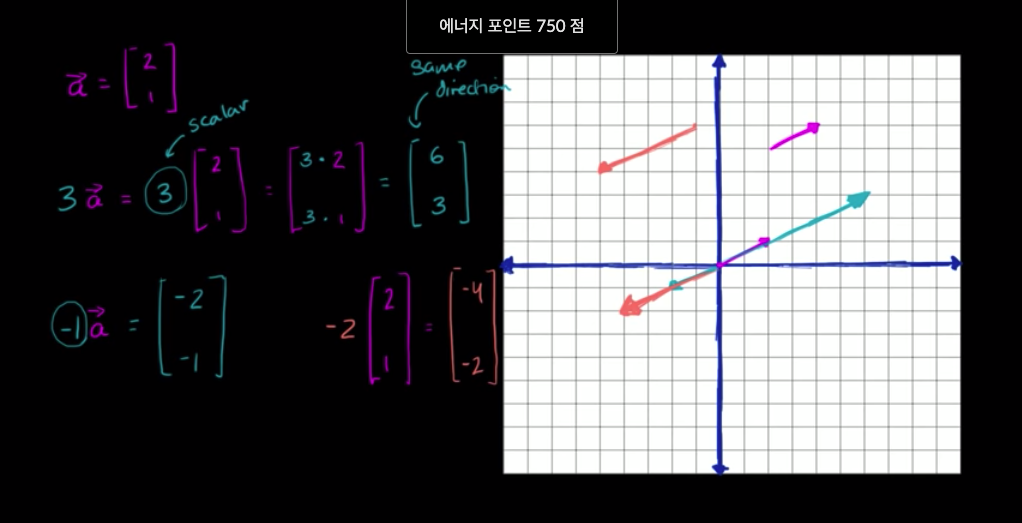 에너지 포인트 750 점
a⃗ = [2 1]
scalar
same
direction
3 a⃗ = 3 [2 1] = [3·2 3·1] = [6 3]
-1 a⃗ = [-2 -1]
-2 [2 1] = [-4 -2]